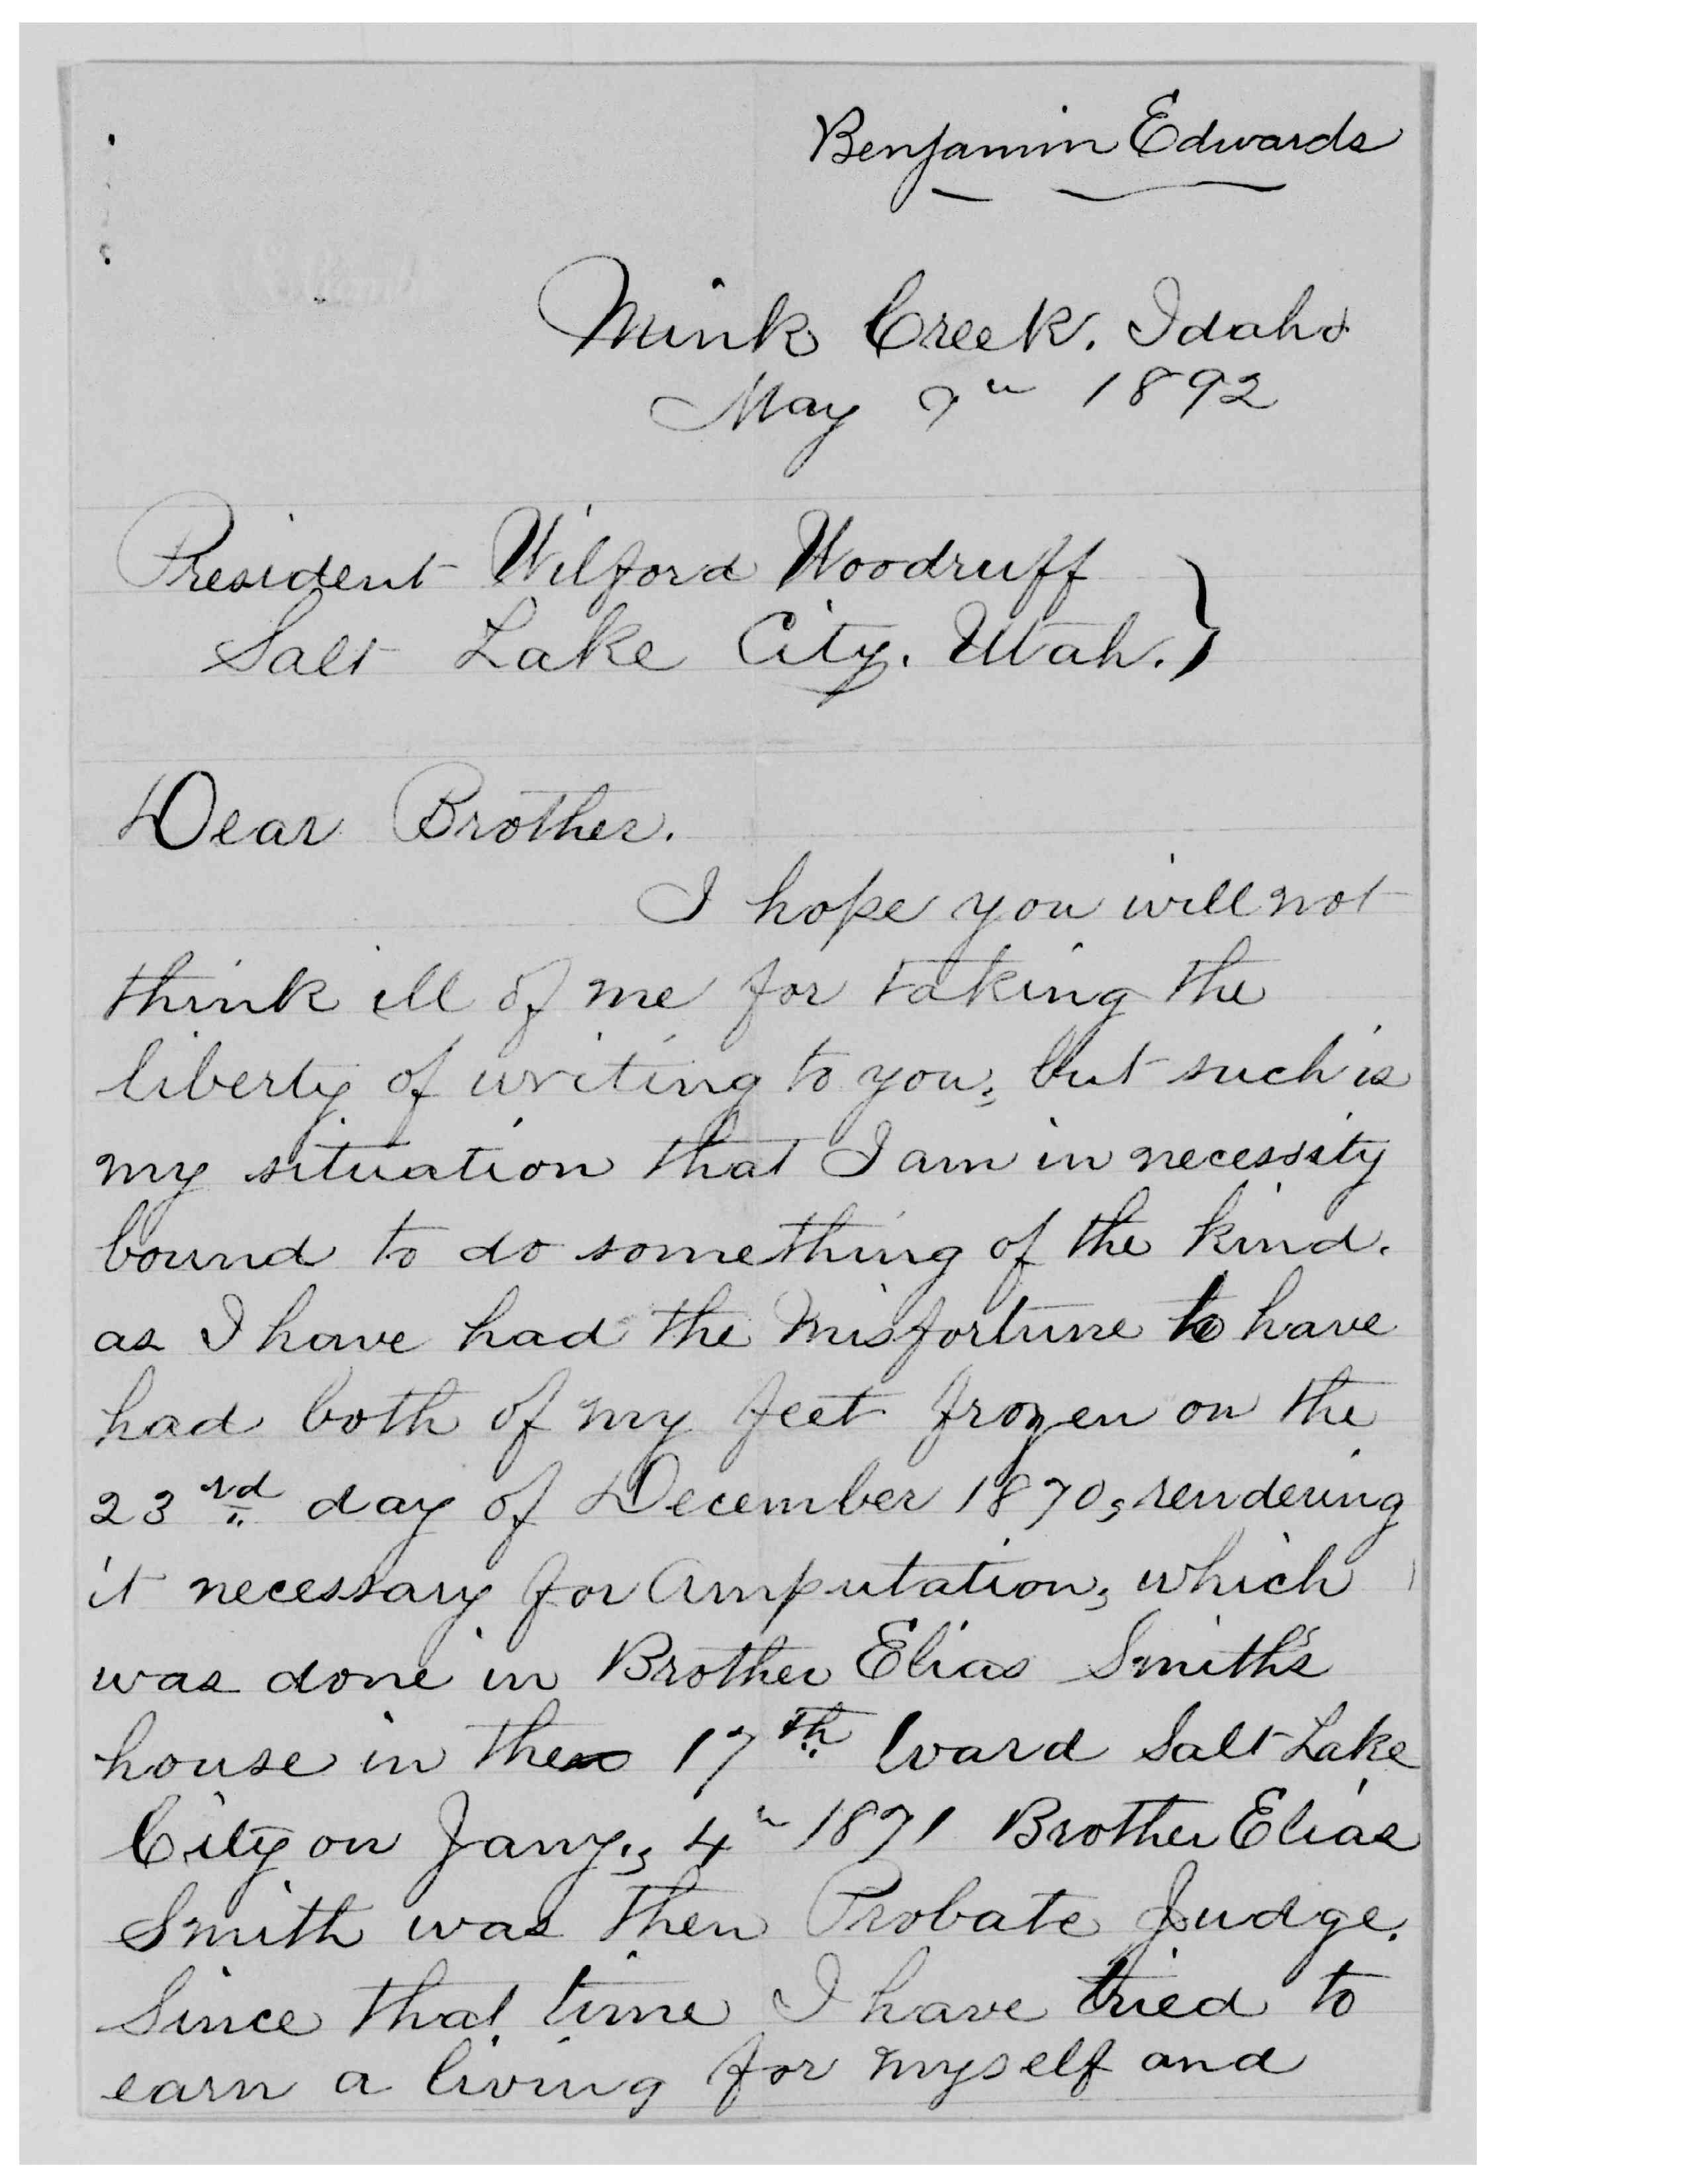 Benjamin Edwards
Mink Creek. Idaho
May 7th 1892
President Wilford Woodruff }
Salt Lake City. Utah.
Dear Brother.
I hope you will not
think ill of me for taking the
liberty of writing to you; but such is
my situation that I am in necessity
bound to do something of the kind.
as I have had the misfortune to have
had both of my feet frozen on the
23rd day of December 1870, rendering
it necessary for Amputation, which
was done in Brother Elias Smith's
house in the 17th Ward Salt Lake
City on Jany., 4th 1871 Brother Elias
Smith was then Probate Judge.
Since that time I have tried to
earn a living for myself and